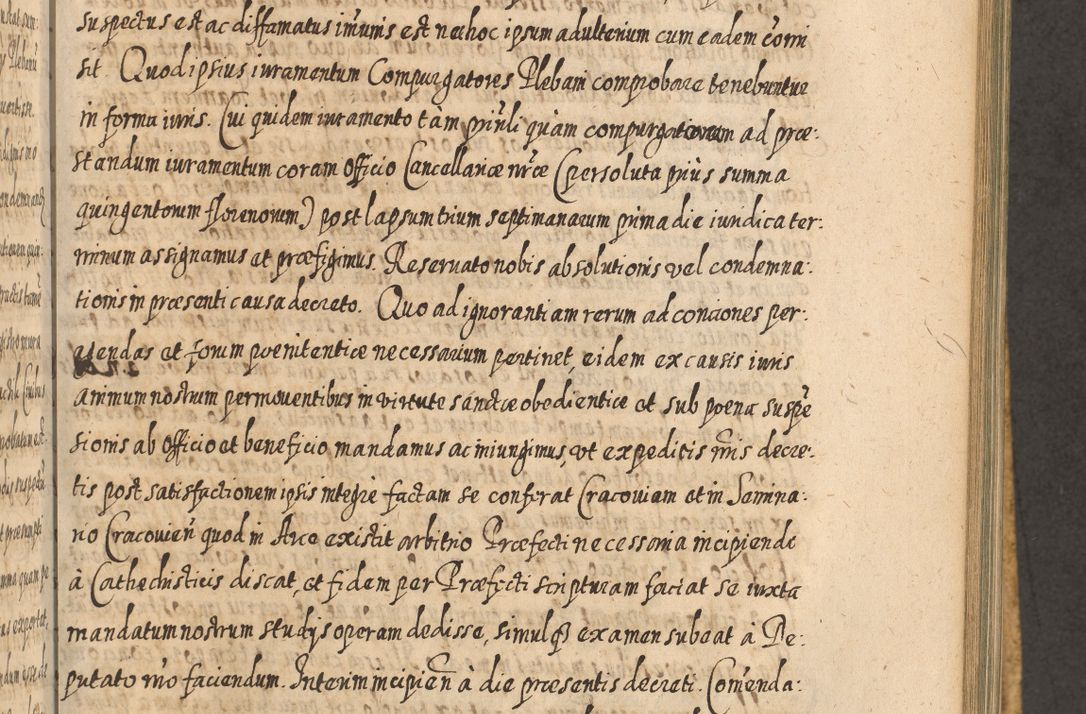 suspectus est ac diffamatus im̃unis est nec hoc ipsum adulterium cum eadem com̃i
sit. Quod ipsius iuramentum Compurgatores Plebani comprobare tenebuntur
in forma iuris. Cui quidem iuramento tam prin̄li quàm compurgatorum ad præ:
standum iuramentum coram Officio Cancellariæ nr̃æ (persoluta priùs summa
quingentorum florenorum) post lapsum trium septimanarum prima die iuridica ter:
minum assignamus et præfigimus. Reseruato nobis absolutionis vel condemna:
tionis in præsenti causa decreto. Quo ad ignorantiam rerum ad conciones per:
agendas et forum pœnitentiæ necessarium pertinet, eidem ex causis iuris
animum nostrum permouentibus in virtute sanctæ obedientiæ et sub pœna suspẽ
sionis ab officio et beneficio mandamus ac iniungimus, vt expeditis nr̃is decre:
tis post satisfactionem ipsis integrè factam se conferat Cracouiam et in Semina:
rio Cracouien̄ quod in Arce existit arbitrio Præfecti necessaria incipiendo
à Cathechisticis discat, et fidem per Præfecti scripturam faciat se iuxta
mandatum nostrum studijs operam dedisse, simulq3 examen subeat à De:
putato nr̃o faciendum. Interim incipien̄ à die præsentis decreti. Com̃enda: